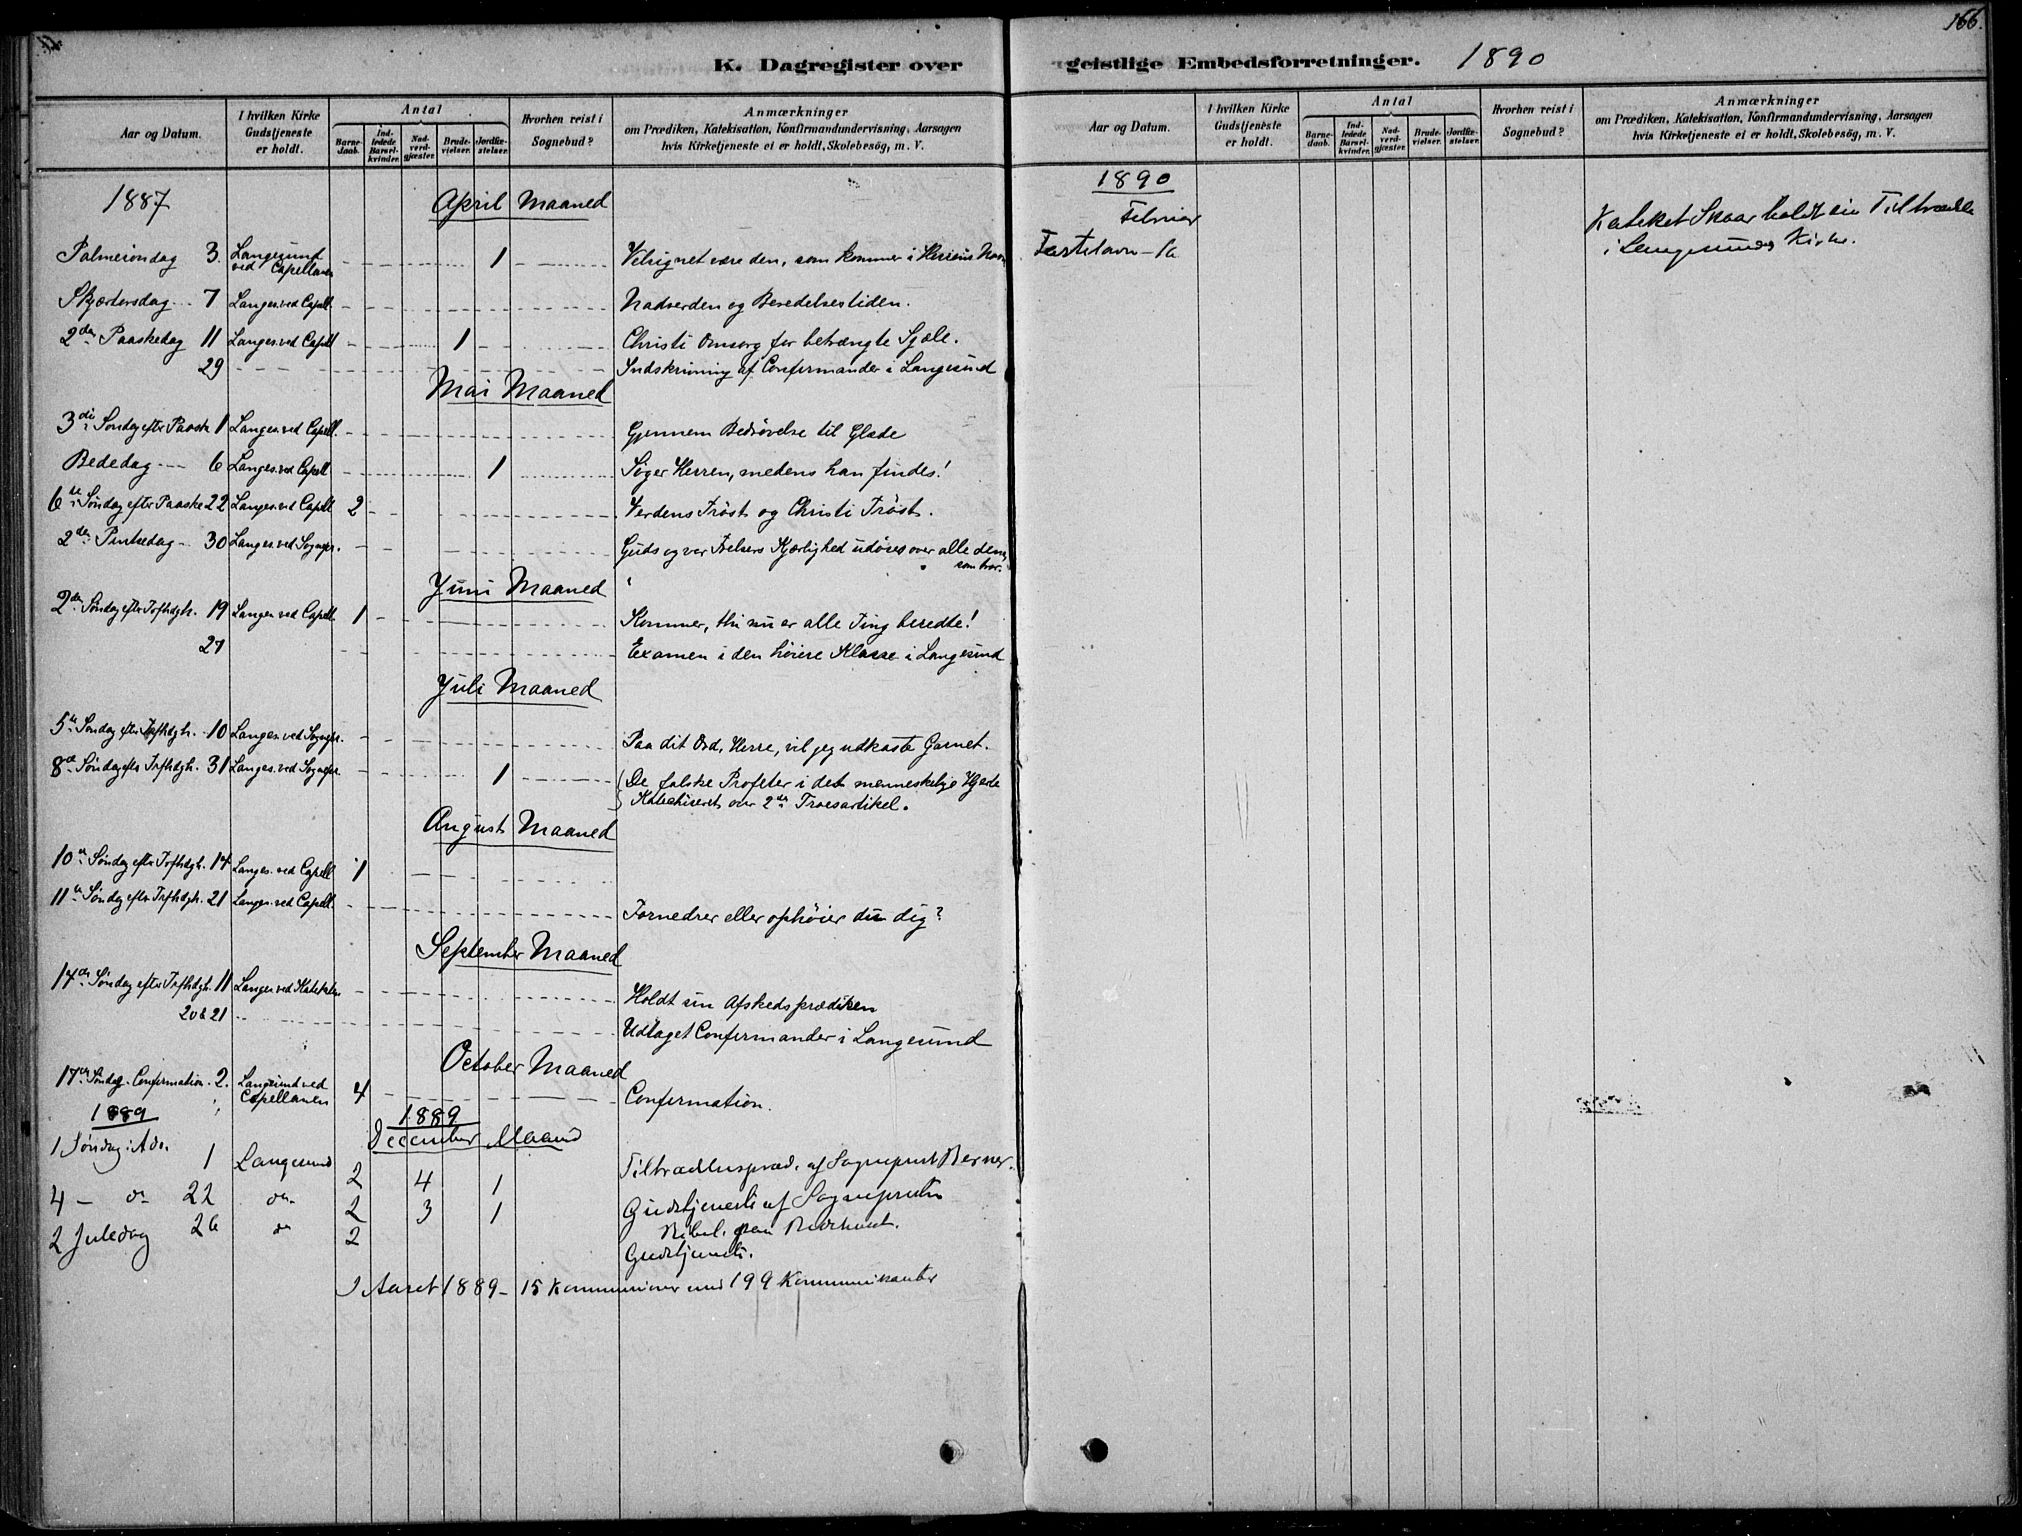 166.
K. Dagregister over
geistlige Embedsforretninger. 1890
Aar og Datum.
I hvilken Kirke Gudstjeneste er holdt.
Antal
Barne-daab.
Ind-ledede Barsel-kvinder.
Nad-verd-gjæster.
Brude-vielser.
Jordfæ-stelser.
Hvorhen reist i Sognebud?
Anmærkninger
om Prædiken, Katekisation, Konfirmandundervisning, Aarsagen
hvis Kirketjeneste ei er holdt, Skolebesög, m. V.
1887
April Maaned
Palmesöndag 3. Langesund ved Capellanen 1 Velsignet være den, som kommer i Herrens Navn
Skjærtorsdag 7 Langes. ved Capell. Nadverden og Beredelsestiden.
2den Paaskedag 11 Langes. ved Capell 1 Christi Omsorg for betrængte Sjæle.
29 Indskrivning af Confirmander i Langesund
Mai Maaned
3die Søndag efter Paaske 1 Langes. ved Capell. Gjennem Bedrøvelse til Glæde
Bededag 6 Langes. ved Capell 1 Søger Herren, medens han findes!
6te Søndag efter Paaske 22 Langes. ved Capell 2 Verdens Trøst og Christi Trøst.
2den Pintsedag 30 Langes. ved Sognepr. Guds og vor Frelsers Kjærlighed udøses over alle dem,
som tror.
Juni Maaned
2den Søndag efter Trefhdgh. 19 Langes. ved Capell. 1 Kommer, thi nu er alle Ting beredte!
27 Examen i den høiere Klasse i Langesund
Juli Maaned
5te Søndag efter Trefhdgh. 10 Langes. ved Sognepr. Paa dit Ord, Herre, vil jeg udkaste Garnet.
8de Søndag efter Trefhdgh. 31 Langes. ved Sognepr. 1 De falske Profeter i det menneskelige Hjerte
Katechiseret over 2den Troesartikel.
August Maaned
10de Søndag efter Trefhdgh. 14 Langes. ved Capell 1
11te Søndag efter Trefhdgh. 21 Langes. ved Capell. Fornedrer eller ophøier du dig?
September Maaned
14de Søndag efter Trefhdgh. 11 Langes. ved Kateketen Holdt sin Afskedsprædiken
20 & 21 Udtaget Confirmander i Langesund
October Maaned
17de Søndag. Confirmation. 2. Langesund ved Capellanen 4 Confirmation.
1889
1889
December Maaned
1 Søndag i Adv. 1 Langesund 2 4 1 Tiltrædelsespræd. af Sognepræst Berner.
4 – do 22 do 2 3 1 Gudstjeneste af Sognepresten
2 Juledag 26 do 2 Bibel. paa Bedehuset.
Gudstjeneste.
I Aaret 1889 – 15 Kommunioner med 199 Kommunikanter
Aar og Datum.
I hvilken Kirke Gudstjeneste er holdt.
Antal
Barne-daab.
Ind-ledede Barsel-kvinder.
Nad-verd-gjæster.
Brude-vielser.
Jordfæ-stelser.
Hvorhen reist i Sognebud?
Anmærkninger
om Prædiken, Katekisation, Konfirmandundervisning, Aarsagen
hvis Kirketjeneste ei er holdt, Skolebesög, m. V.
1890
Februar
Fastelavn – 16 Kateket Skaar holdt sin Tiltrædelse
i Langesunds Kirke.